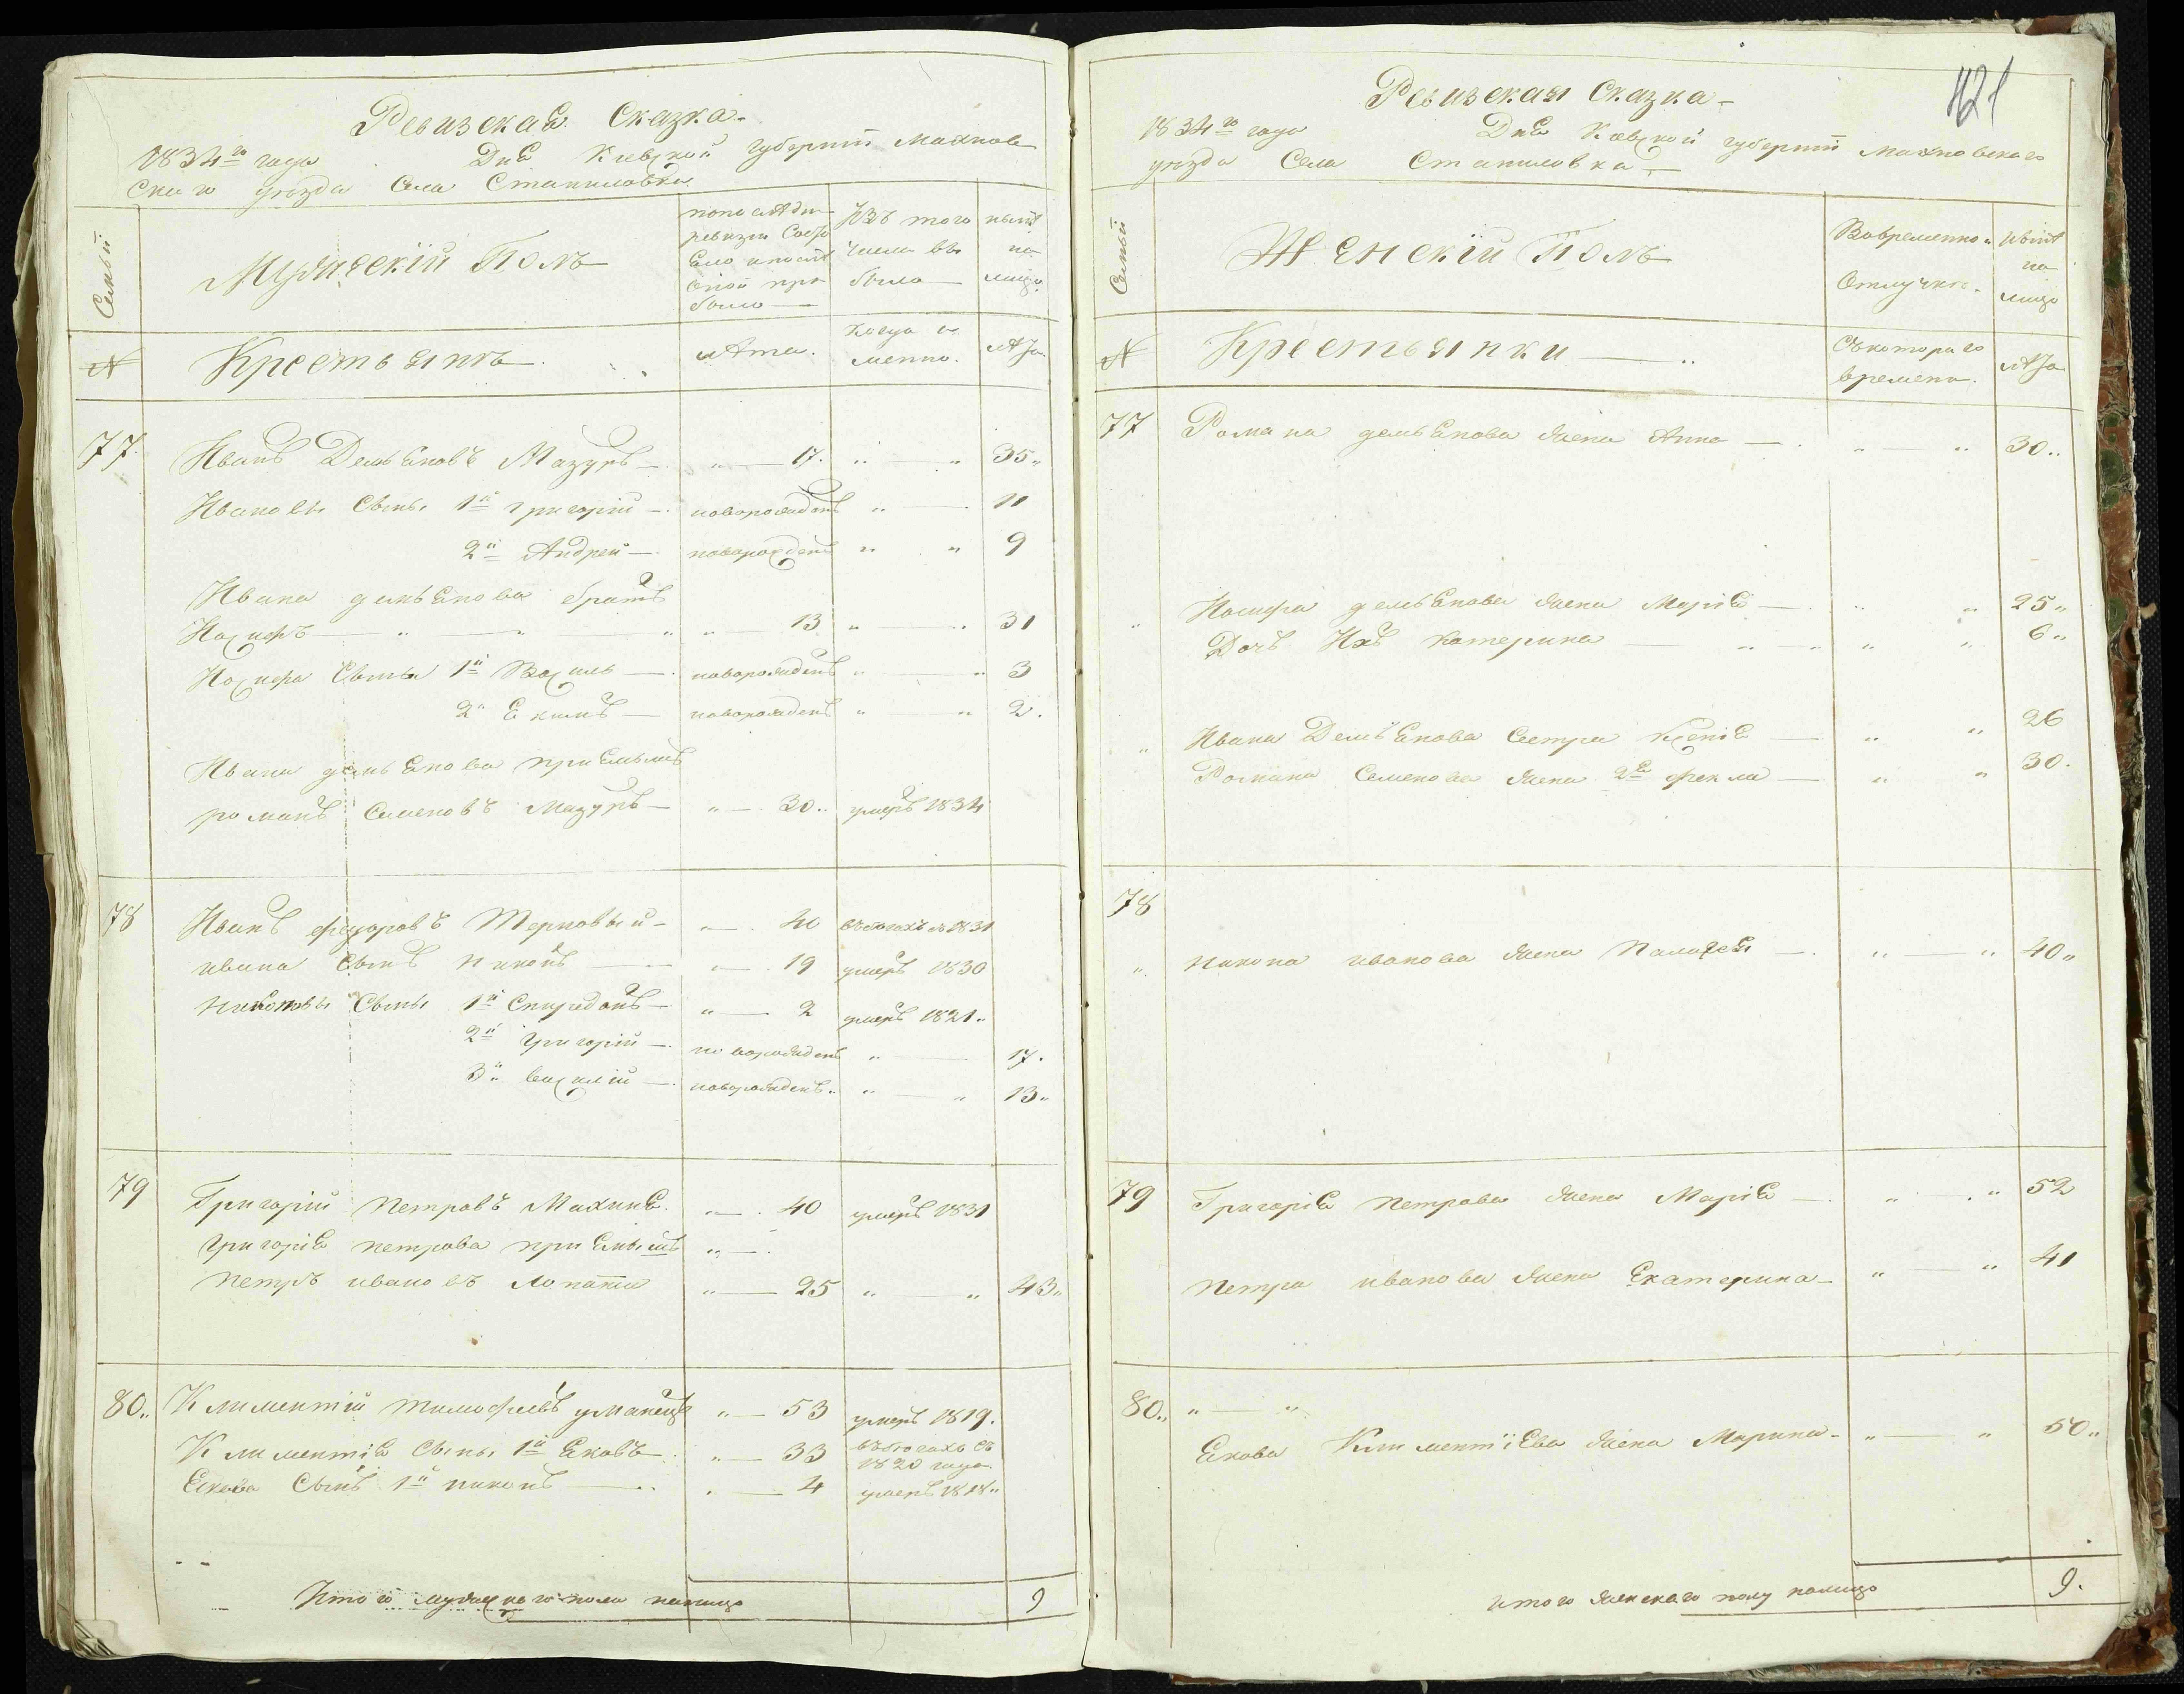 Ревизская Сказка
1834го года Дня Киевской губернии Махнов
скаго уѣзда Села Станиловки
Семьи
Мужескій Полъ
по последн
ревизіи Состо
яло и после
оной при
было
Изъ того
числа вы
было
нынѣ
на
лицо
№
Крестьянъ
лѣта.
когда и
менно.
лѣта
77.
Иванъ Демьяновъ Мазуръ — 17. 35
Ивановы Сыны 1й Григорій — новорожденъ 11
2й Андрей — новорожденъ 9
Ивана демьянова братъ
Иосифъ 13 31
Иосифа Сыны 1й Василь — новорожденъ 3
2й Екимъ — новорожденъ 2.
Ивана демьянова приемышъ
романъ Семеновъ Мазуръ — 30.. умеръ 1834
78
Иванъ федоровъ Терновый — 40 въ бегахъ съ 1831
ивана Сынъ Никонъ — 19 умеръ 1830
никоновы Сыны 1й Спиредонъ — 2 умеръ 1821
2й Григорій — новорожденъ 17.
3й василій — новорожденъ 13
79
Григорій Петровъ Махиня. 40 умеръ 1831
Григорія петрова приемышъ
Петръ ивановъ Лопата 25 43
80
Климентій тимофѣевъ уманецъ 53 умеръ 1819.
Климентія Сыны 1й Яковъ 33 въ бегахъ съ
1820 года
Якова Сынъ 1й никонъ 4 умеръ 1818
Итого мужескаго пола налицо 9
121
Ревизская Сказка
1834го года Дня Киевской губернии Махновскаго
уѣзда Села Станиловка
Семьи
Женскій Полъ
Во временно
Отлучке.
нынѣ
на
лицо
№
Крестьянки
Съ котораго
времени.
лѣта
77 Романа демьянова жена Анна — 30..
Иосифа демьянова жена Марія — 25
Дочь Ихъ Катерина 6
Ивана Демьянова Сестра Ксенія 26
Романа Семенова жена 2я фекла — 30.
78
никона иванова жена Палагея — 40
79 Григорія Петрова жена Марія — 52
Петра иванова жена Екатерина — 41
80
Якова Климентіева жена Марина — 50
итого женскаго полу налицо 9.